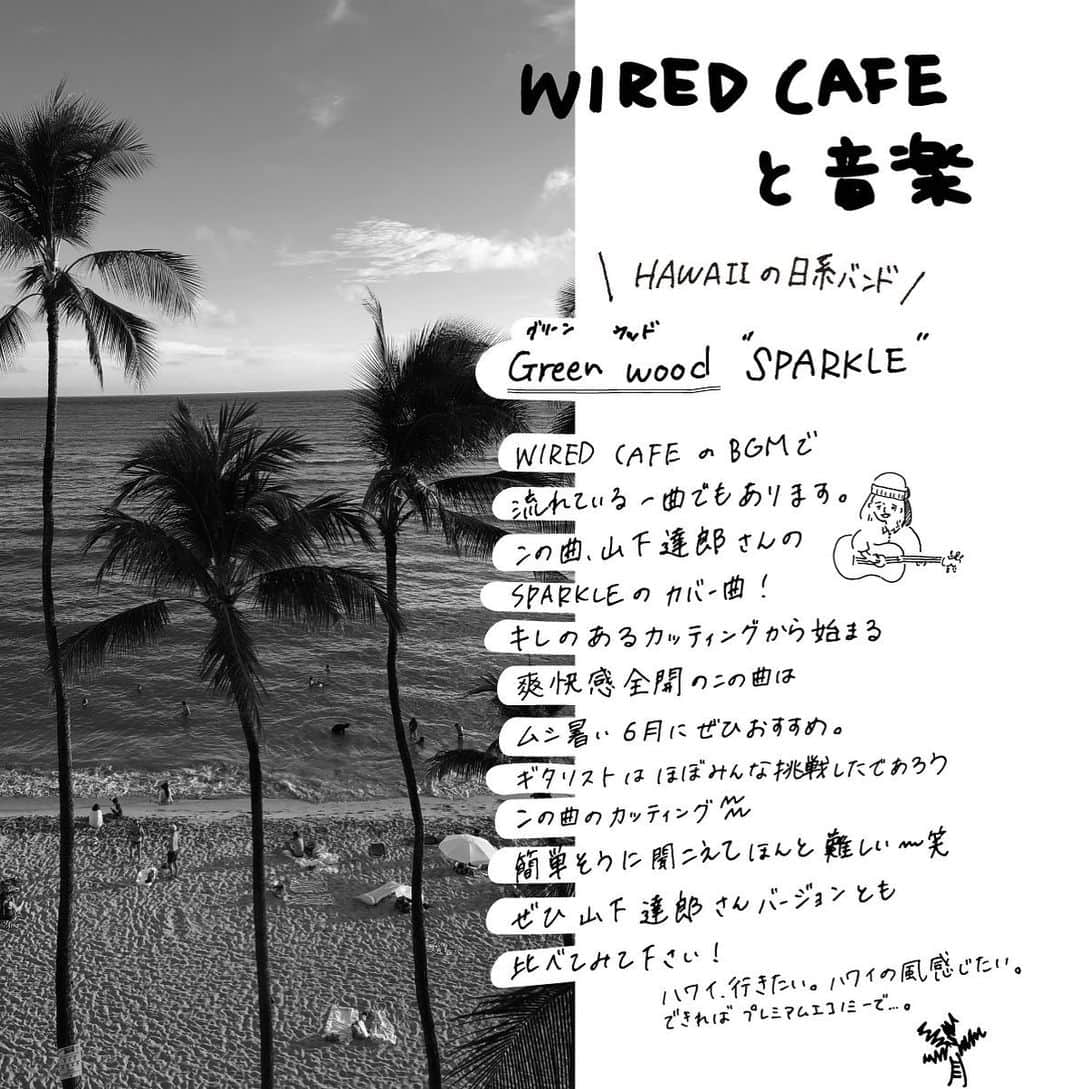 WIRED CAFE
と音楽
\ HAWAIIの日系バンド /
グリーン ウッド
Green wood "SPARKLE"
WIRED CAFEのBGMで
流れている一曲でもあります。
この曲、山下達郎さんの
SPARKLEのカバー曲！
キレのあるカッティングから始まる
爽快感全開のこの曲は
ムシ暑い6月にぜひおすすめ。
ギタリストはほぼみんな挑戦したであろう
この曲のカッティング〜〜
簡単そうに聞こえてほんと難しい〜笑
ぜひ山下達郎さんバージョンとも
比べてみて下さい！
ハワイ、行きたい。ハワイの風感じたい。
できればプレミアムエコノミーで…。